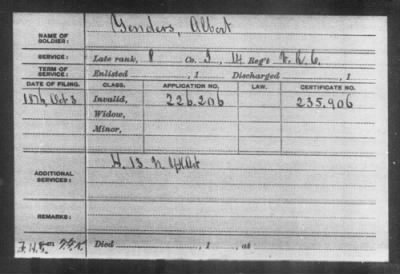 NAME OF SOLDIER: Genders, Albert
SERVICE: Late rank, P Co. I, 14 Reg't V. R. C.
TERM OF SERVICE: Enlisted , 1 Discharged , 1
DATE OF FILING. CLASS. APPLICATION NO. LAW. CERTIFICATE NO.
1876, Oct 3 Invalid, 226.206 235.906
Widow,
Minor,
ADDITIONAL SERVICES: H. 13. N
REMARKS:
Died , 1 , at